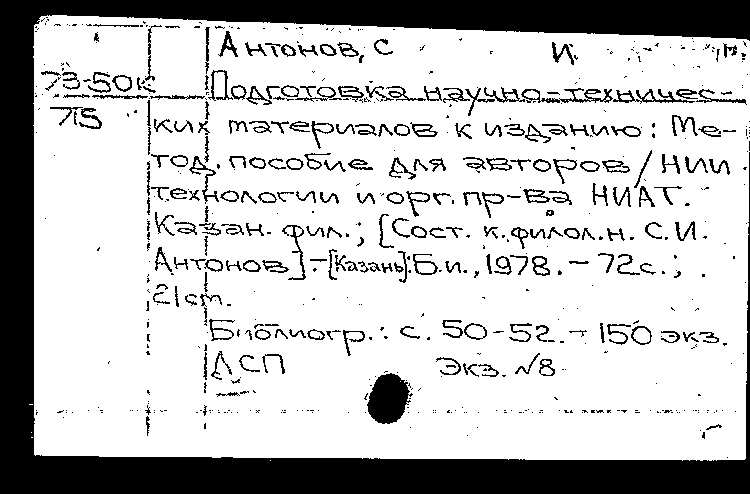 Антонов, С И.
73-50К Подготовка научно-техничес-
715 ких материалов к изданию: Ме-
тод. пособие для авторов / НИИ
технологии и орг. пр-ва НИАТ.
Казан. фил.; [Сост. к.филол.н. С.И.
Антонов].-[Казань]: Б.и., 1978. - 72с.;
21cm.
Библиогр.: с. 50-52. - 150 экз.
ДСП Экз. №8